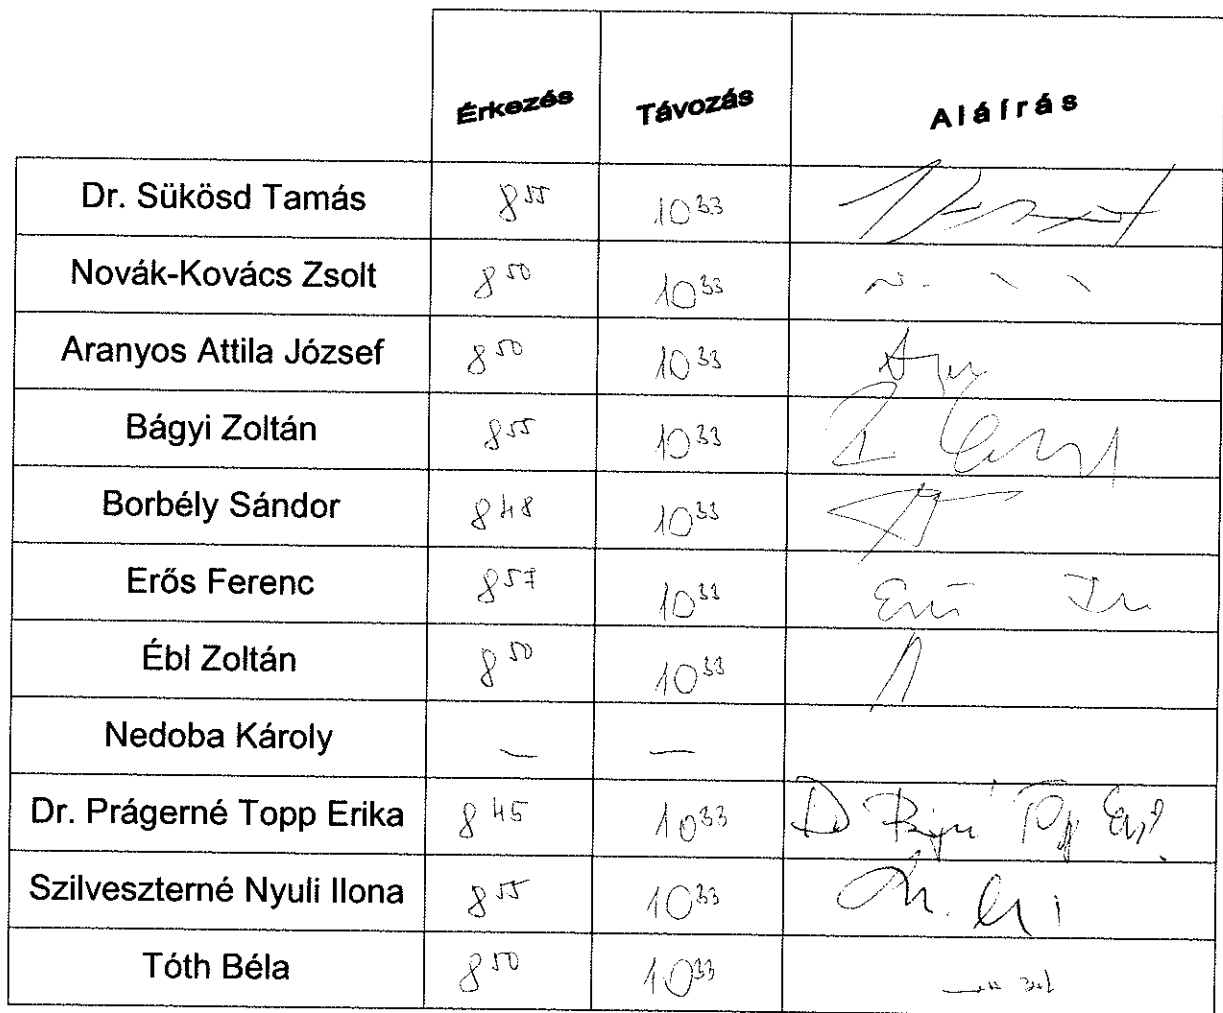 Érkezés Távozás Aláírás
Dr. Sükösd Tamás 8 55 10 33
Novák-Kovács Zsolt 8 50 10 33
Aranyos Attila József 8 50 10 33
Bágyi Zoltán 8 55 10 33
Borbély Sándor 8 48 10 33
Erős Ferenc 8 57 10 33
Ébl Zoltán 8 50 10 33
Nedoba Károly — —
Dr. Prágerné Topp Erika 8 45 10 33
Szilveszterné Nyuli Ilona 8 55 10 33
Tóth Béla 8 50 10 33